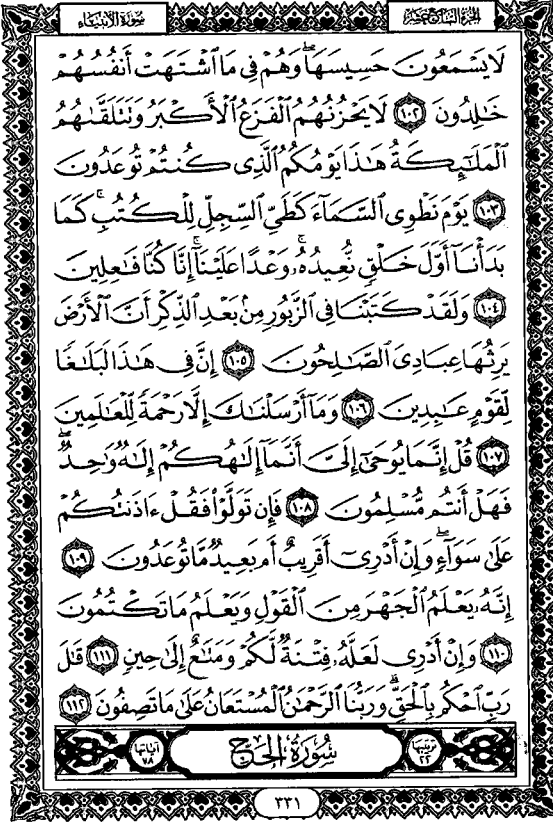 الجزء السابع عشر
سورة الأنبياء
لَا يَسْمَعُونَ حَسِيسَهَا ۖ وَهُمْ فِى مَا ٱشْتَهَتْ أَنفُسُهُمْ
خَٰلِدُونَ ١٠٢ لَا يَحْزُنُهُمُ ٱلْفَزَعُ ٱلْأَكْبَرُ وَتَتَلَقَّىٰهُمُ
ٱلْمَلَٰٓئِكَةُ هَٰذَا يَوْمُكُمُ ٱلَّذِى كُنتُمْ تُوعَدُونَ
١٠٣ يَوْمَ نَطْوِى ٱلسَّمَآءَ كَطَىِّ ٱلسِّجِلِّ لِلْكُتُبِ ۚ كَمَا
بَدَأْنَآ أَوَّلَ خَلْقٍ نُّعِيدُهُۥ ۚ وَعْدًا عَلَيْنَآ ۚ إِنَّا كُنَّا فَٰعِلِينَ
١٠٤ وَلَقَدْ كَتَبْنَا فِى ٱلزَّبُورِ مِنۢ بَعْدِ ٱلذِّكْرِ أَنَّ ٱلْأَرْضَ
يَرِثُهَا عِبَادِىَ ٱلصَّٰلِحُونَ ١٠٥ إِنَّ فِى هَٰذَا لَبَلَٰغًا
لِّقَوْمٍ عَٰبِدِينَ ١٠٦ وَمَآ أَرْسَلْنَٰكَ إِلَّا رَحْمَةً لِّلْعَٰلَمِينَ
١٠٧ قُلْ إِنَّمَا يُوحَىٰٓ إِلَىَّ أَنَّمَآ إِلَٰهُكُمْ إِلَٰهٌ وَٰحِدٌ ۖ
فَهَلْ أَنتُم مُّسْلِمُونَ ١٠٨ فَإِن تَوَلَّوْا۟ فَقُلْ ءَاذَنتُكُمْ
عَلَىٰ سَوَآءٍ ۖ وَإِنْ أَدْرِىٓ أَقَرِيبٌ أَم بَعِيدٌ مَّا تُوعَدُونَ ١٠٩
إِنَّهُۥ يَعْلَمُ ٱلْجَهْرَ مِنَ ٱلْقَوْلِ وَيَعْلَمُ مَا تَكْتُمُونَ
١١٠ وَإِنْ أَدْرِى لَعَلَّهُۥ فِتْنَةٌ لَّكُمْ وَمَتَٰعٌ إِلَىٰ حِينٍ ١١١ قَٰلَ
رَبِّ ٱحْكُم بِٱلْحَقِّ ۗ وَرَبُّنَا ٱلرَّحْمَٰنُ ٱلْمُسْتَعَانُ عَلَىٰ مَا تَصِفُونَ ١١٢
ترتيبها ٢٢ سُورَةُ الحَجّ آياتها ٧٨
٣٣١